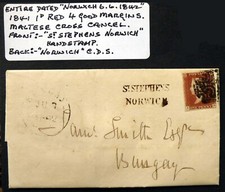 ENTIRE DATED "NORWICH 6.6.1842"
1841 1ᴰ RED 4 GOOD MARGINS.
MALTESE CROSS CANCEL.
FRONT:- "ST STEPHENS NORWICH"
HANDSTAMP.
BACK:- "NORWICH" C.D.S.
ST STEPHENS
NORWICH
James Smith Esqre
Bungay